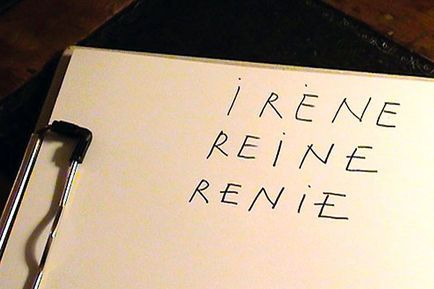 iRÈNE
REINE
RENiE